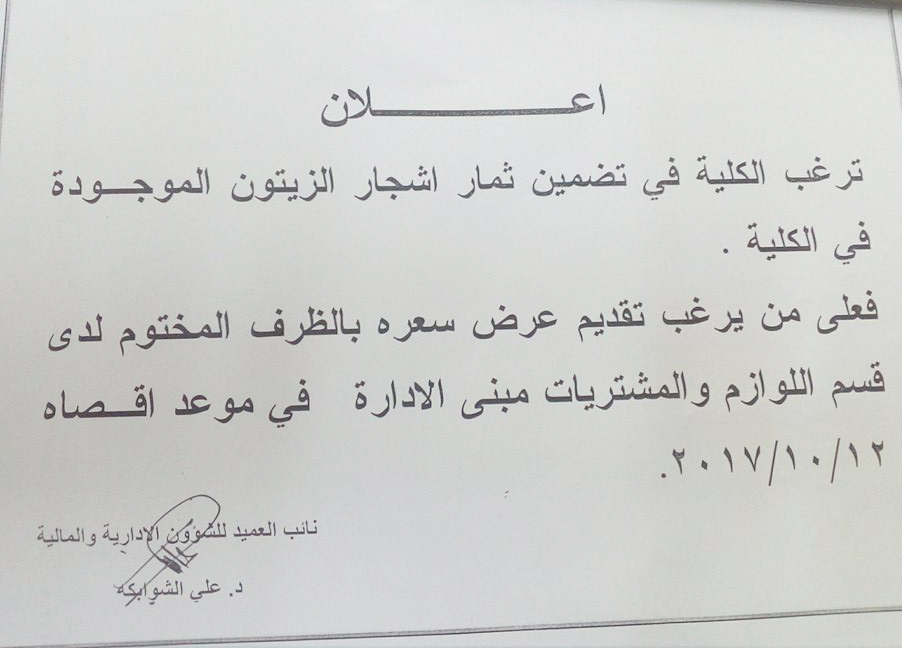 اعـــــــــــــلان
ترغب الكلية في تضمين ثمار اشجار الزيتون الموجـــودة
في الكلية .
فعلى من يرغب تقديم عرض سعره بالظرف المختوم لدى
قسم اللوازم والمشتريات مبنى الادارة في موعد اقـــصاه
٢٠١٧/١٠/١٢.
نائب العميد للشؤون الادارية والمالية
د. علي الشوابكه